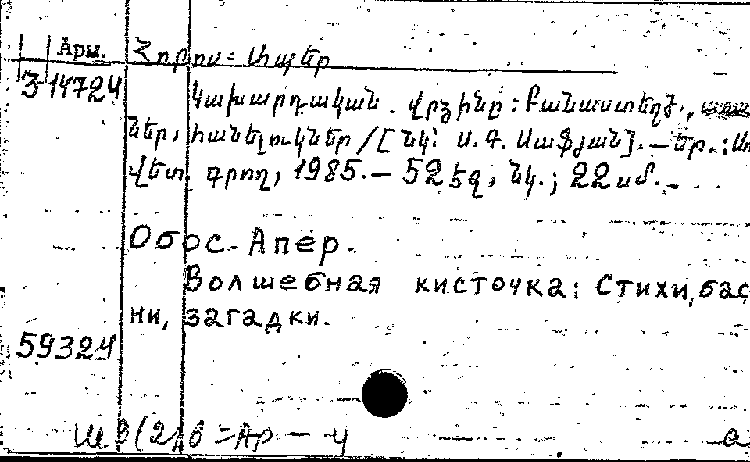 Арм. Հոբոս-Ապեր
3-14724
Կախարդական վրձինը: Բանաստեղծ.,
ներ, հանելուկներ /[Նկ: Ս. Գ. Սաֆյան].—Եր.: Սո
վետ. գրող, 1985.— 52 էջ, նկ.; 22 սմ.—
Обос-Апер.
Волшебная кисточка: Стихи, бас
ни, загадки.
59324
Ш 9(2)6=Ар—4 а